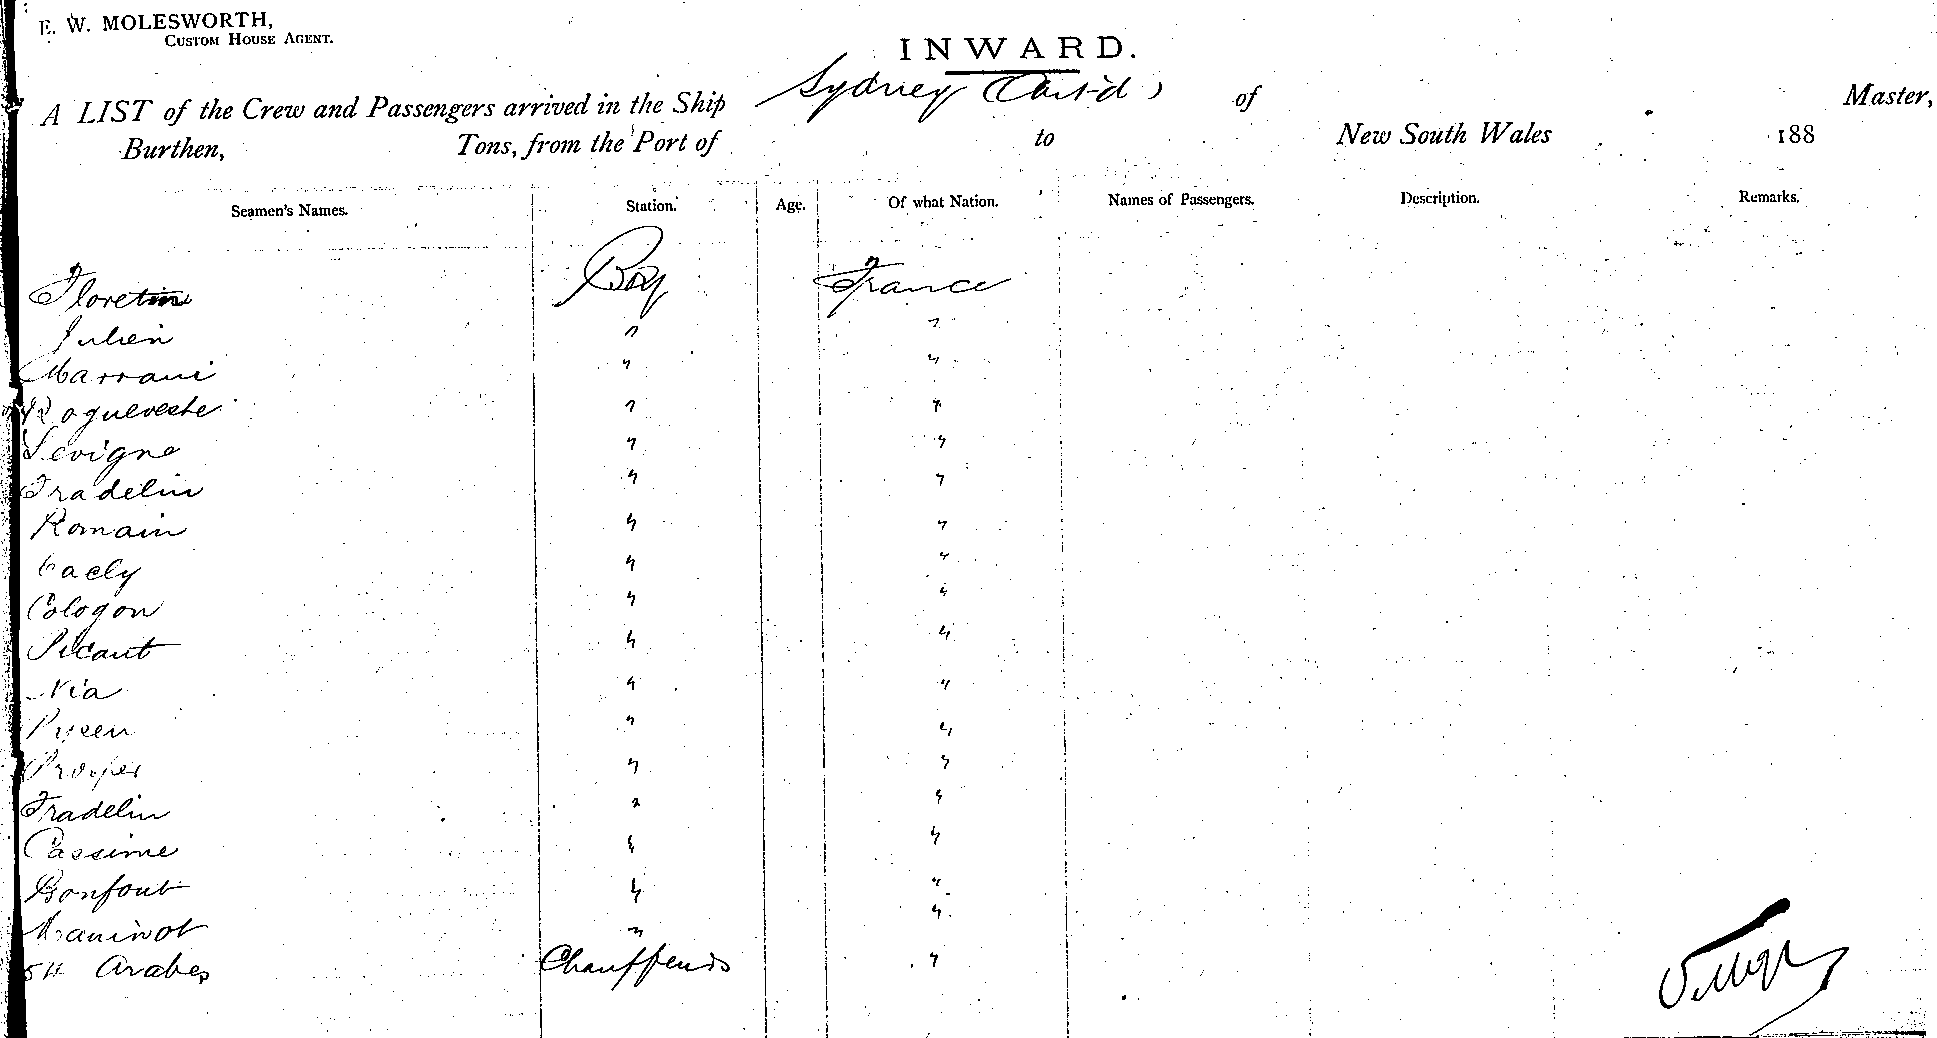 E. W. MOLESWORTH,
CUSTOM HOUSE AGENT.
INWARD.
A LIST of the Crew and Passengers arrived in the Ship Sydney (Cont'd) of Master,
Burthen, Tons, from the Port of to New South Wales 188
Seamen's Names. Station. Age. Of what Nation. Names of Passengers. Description. Remarks.
Floretin Boy France
Julien " "
Marrani " "
" "
Sevigne " "
Fradelin " "
Romain " "
Caely " "
Cologon " "
Picaut " "
Via " "
" "
Prosper " "
Fradelin " "
Cassime " "
Bonfout " "
" "
54 Arabes Chauffeurs "